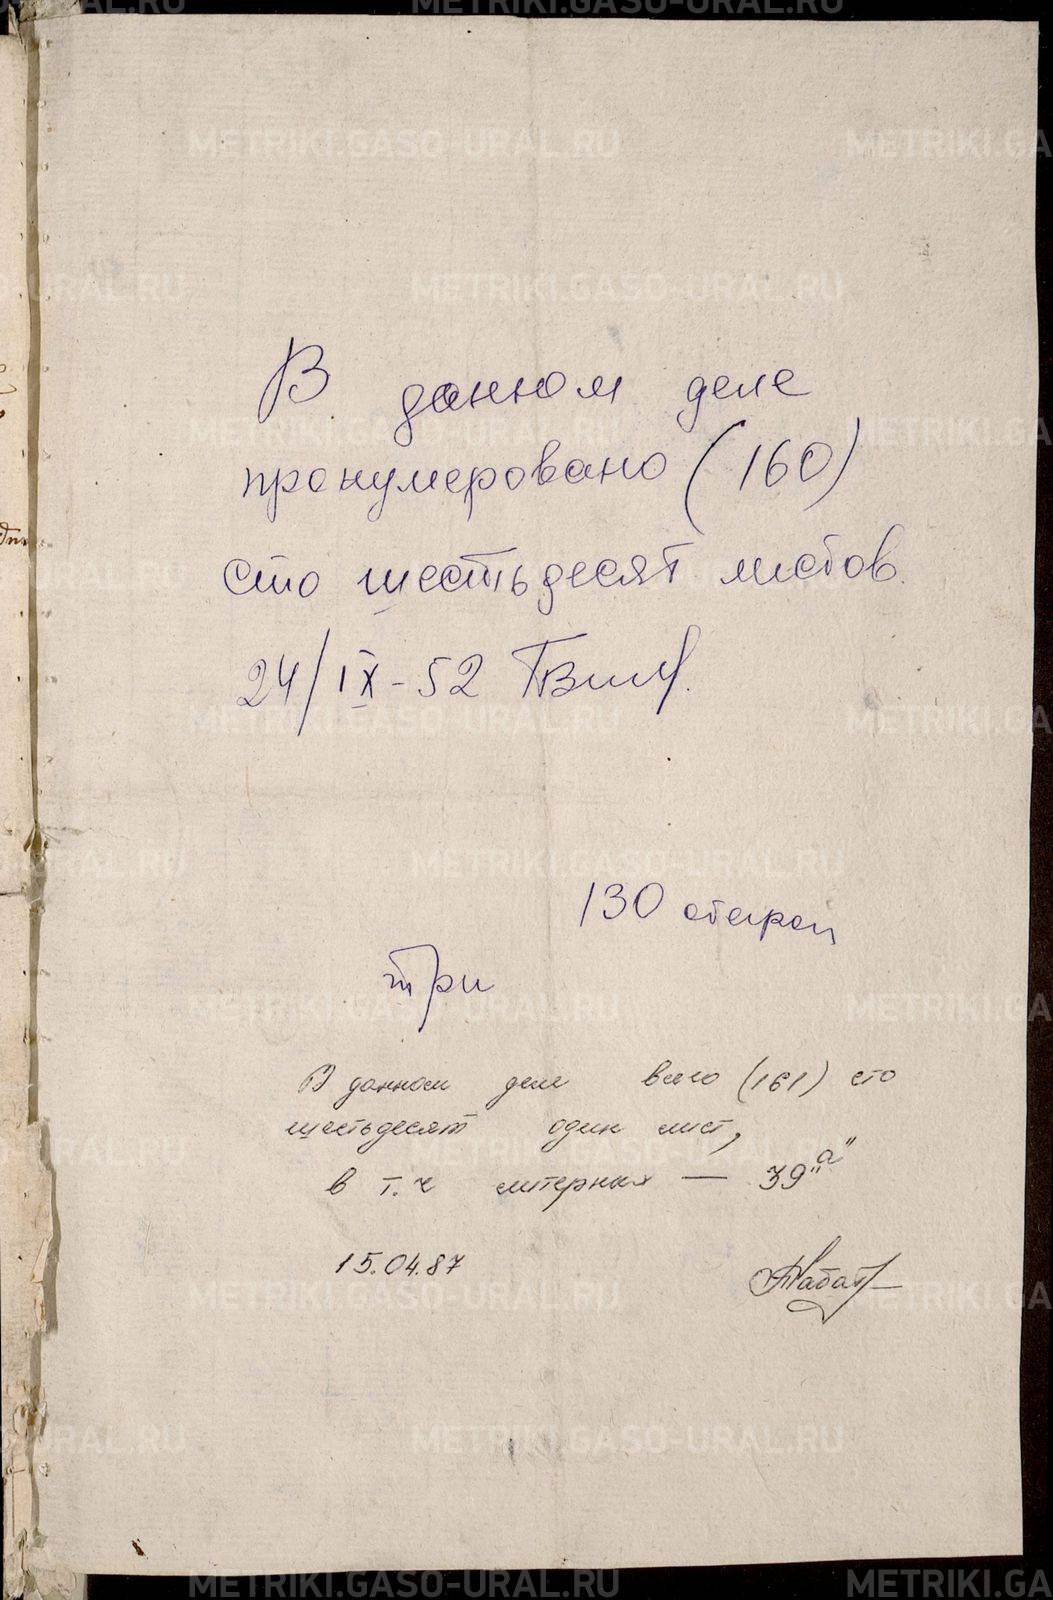 В данном деле
пронумеровано (160)
сто шестьдесят листов.
24/IX-52
130
три
В данном деле всего (161) сто
шестьдесят один лист,
в т.ч литерных — 39"а"
15.04.87
METRIKI.GASO-URAL.RU